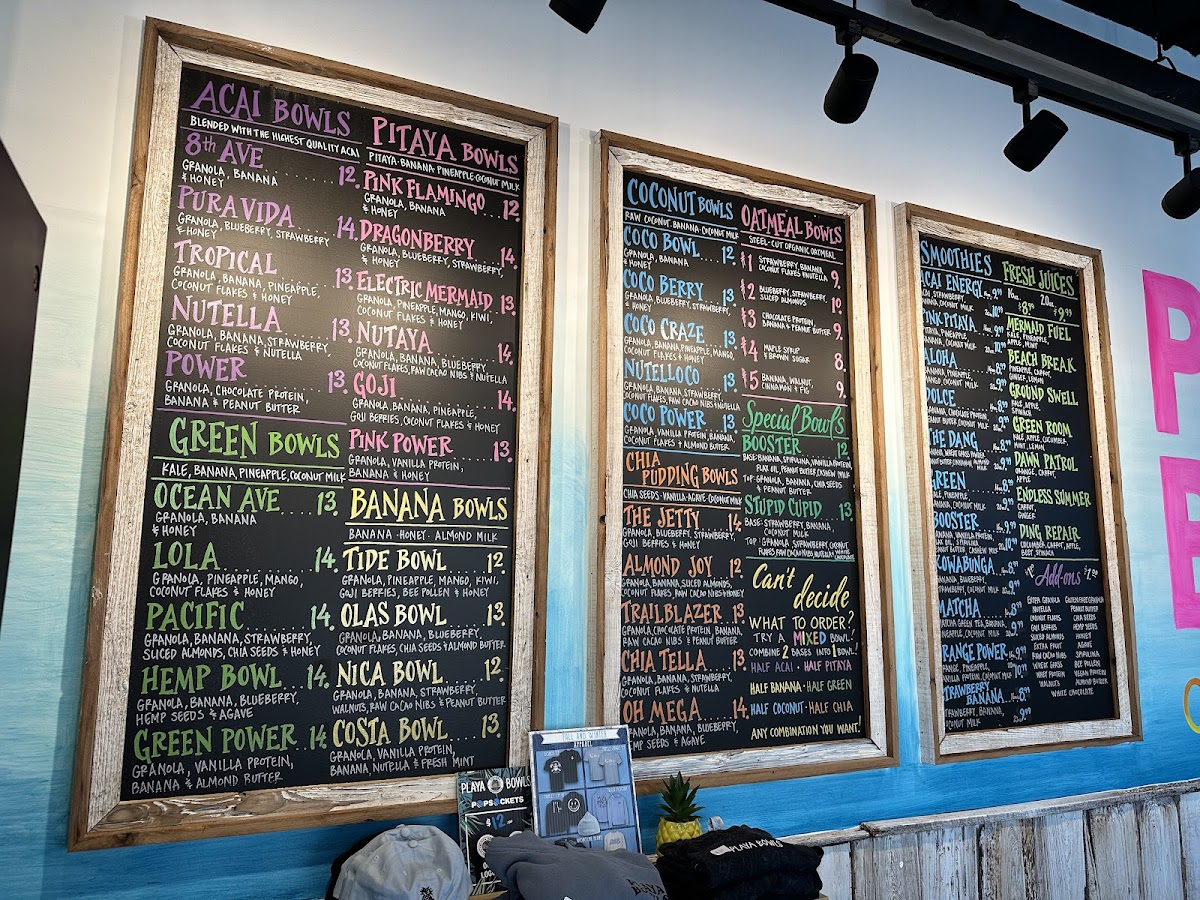 ACAI BOWLS
BLENDED WITH THE HIGHEST QUALITY ACAI
8th AVE 12.
GRANOLA, BANANA
& HONEY
PURA VIDA 14.
GRANOLA, BLUEBERRY, STRAWBERRY
& HONEY
TROPICAL 13.
GRANOLA, BANANA, PINEAPPLE,
COCONUT FLAKES & HONEY
NUTELLA 13.
GRANOLA, BANANA, STRAWBERRY,
COCONUT FLAKES & NUTELLA
POWER 13.
GRANOLA, CHOCOLATE PROTEIN,
BANANA & PEANUT BUTTER
GREEN BOWLS
KALE, BANANA, PINEAPPLE, COCONUT MILK
OCEAN AVE 13.
GRANOLA, BANANA
& HONEY
LOLA 14.
GRANOLA, PINEAPPLE, MANGO,
COCONUT FLAKES & HONEY
PACIFIC 14.
GRANOLA, BANANA, STRAWBERRY,
SLICED ALMONDS, CHIA SEEDS & HONEY
HEMP BOWL 14.
GRANOLA, BANANA, BLUEBERRY,
HEMP SEEDS & AGAVE
GREEN POWER 14
GRANOLA, VANILLA PROTEIN,
BANANA & ALMOND BUTTER
PITAYA BOWLS
PITAYA·BANANA·PINEAPPLE·COCONUT MILK
PINK FLAMINGO 12.
GRANOLA, BANANA
& HONEY
DRAGONBERRY 14.
GRANOLA, BLUEBERRY, STRAWBERRY,
& HONEY
ELECTRIC MERMAID 13.
GRANOLA, PINEAPPLE, MANGO, KIWI,
COCONUT FLAKES & HONEY
NUTAYA 14.
GRANOLA, BANANA, BLUEBERRY
COCONUT FLAKES, RAW CACAO NIBS & NUTELLA
GOJI 14.
GRANOLA, BANANA, PINEAPPLE,
GOJI BERRIES, COCONUT FLAKES & HONEY
PINK POWER 13.
GRANOLA, VANILLA PROTEIN,
BANANA & HONEY
BANANA BOWLS
BANANA · HONEY · ALMOND MILK
TIDE BOWL 12.
GRANOLA, PINEAPPLE, MANGO, KIWI,
GOJI BERRIES, BEE POLLEN & HONEY
OLAS BOWL 13.
GRANOLA, BANANA, BLUEBERRY,
COCONUT FLAKES, CHIA SEEDS & ALMOND BUTTER
NICA BOWL 12.
GRANOLA, BANANA, STRAWBERRY,
WALNUTS, RAW CACAO NIBS & PEANUT BUTTER
COSTA BOWL 13.
GRANOLA, VANILLA PROTEIN,
BANANA, NUTELLA & FRESH MINT
COCONUT BOWLS
RAW COCONUT·BANANA·COCONUT MILK
COCO BOWL 12.
GRANOLA, BANANA
& HONEY
COCO BERRY 13.
GRANOLA, BLUEBERRY, STRAWBERRY,
& HONEY
COCO CRAZE 13.
GRANOLA, BANANA, PINEAPPLE, MANGO,
COCONUT FLAKES & HONEY
NUTELLOCO 13.
GRANOLA, BANANA, STRAWBERRY,
COCONUT FLAKES, RAW CACAO NIBS & NUTELLA
COCO POWER 13.
GRANOLA, VANILLA PROTEIN, BANANA,
COCONUT FLAKES & ALMOND BUTTER
CHIA
PUDDING BOWLS
CHIA SEEDS·VANILLA·AGAVE·COCONUT MILK
THE JETTY 14.
GRANOLA, BANANA, BLUEBERRY,
GOJI BERRIES & HONEY
ALMOND JOY 12.
GRANOLA, BANANA, SLICED ALMONDS,
COCONUT FLAKES, RAW CACAO NIBS & HONEY
TRAILBLAZER 13.
GRANOLA, CHOCOLATE PROTEIN, BANANA,
RAW CACAO NIBS & PEANUT BUTTER
CHIA TELLA 13.
GRANOLA, BANANA, STRAWBERRY,
COCONUT FLAKES & NUTELLA
OH MEGA 14.
GRANOLA, BANANA, BLUEBERRY,
HEMP SEEDS & AGAVE
OATMEAL BOWLS
STEEL-CUT ORGANIC OATMEAL
#1 STRAWBERRY, BANANA,
COCONUT FLAKES & NUTELLA 9.
#2 BLUEBERRY, STRAWBERRY,
SLICED ALMONDS 10.
#3 CHOCOLATE PROTEIN,
BANANA & PEANUT BUTTER 9.
#4 MAPLE SYRUP
& BROWN SUGAR 8.
#5 BANANA, WALNUT,
CINNAMON & FIG 9.
Special Bowls
BOOSTER 12.
BASE: BANANA, SPIRULINA, VANILLA PROTEIN,
FLAX OIL, PEANUT BUTTER, CASHEW MILK
TOP: GRANOLA, BANANA, CHIA SEEDS
& PEANUT BUTTER
STUPID CUPID 13.
BASE: STRAWBERRY, BANANA,
COCONUT MILK
TOP: GRANOLA, STRAWBERRY, COCONUT
FLAKES, RAW CACAO NIBS, NUTELLA
Can't decide
WHAT TO ORDER?
TRY A MIXED BOWL!
COMBINE 2 BASES INTO 1 BOWL!
HALF ACAI · HALF PITAYA
HALF BANANA · HALF GREEN
HALF COCONUT · HALF CHIA
ANY COMBINATION YOU WANT!
SMOOTHIES
ACAI ENERGY
PINK PITAYA
ALOHA
DOLCE
THE DANG
GREEN
BOOSTER
COWABUNGA
MATCHA
ORANGE POWER
STRAWBERRY
BANANA
FRESH JUICES
16oz. 20oz.
$8.99 $9.99
MERMAID FUEL
KALE, PINEAPPLE,
APPLE, MINT
BEACH BREAK
PINEAPPLE, CARROT,
GINGER, LEMON
GROUND SWELL
KALE, APPLE,
SPINACH
GREEN ROOM
KALE, APPLE, CUCUMBER,
MINT, LEMON
DAWN PATROL
ORANGE, CARROT,
APPLE
ENDLESS SUMMER
CARROT,
GINGER
DING REPAIR
CUCUMBER, CARROT, APPLE,
BEET, SPINACH
Add-ons
EXTRA GRANOLA
NUTELLA
COCONUT FLAKES
GOJI BERRIES
SLICED ALMONDS
EXTRA FRUIT
RAW CACAO NIBS
WHEAT GRASS
WHEY PROTEIN
WALNUTS
GLUTEN FREE GRANOLA
PEANUT BUTTER
CHIA SEEDS
HEMP SEEDS
HONEY
AGAVE
SPIRULINA
BEE POLLEN
VEGAN PROTEIN
ALMOND BUTTER
WHITE CHOCOLATE
P
E
PLAYA BOWLS
POPSOCKETS
$12
FALL AND WINTER
APPAREL
PLAYA BOWLS